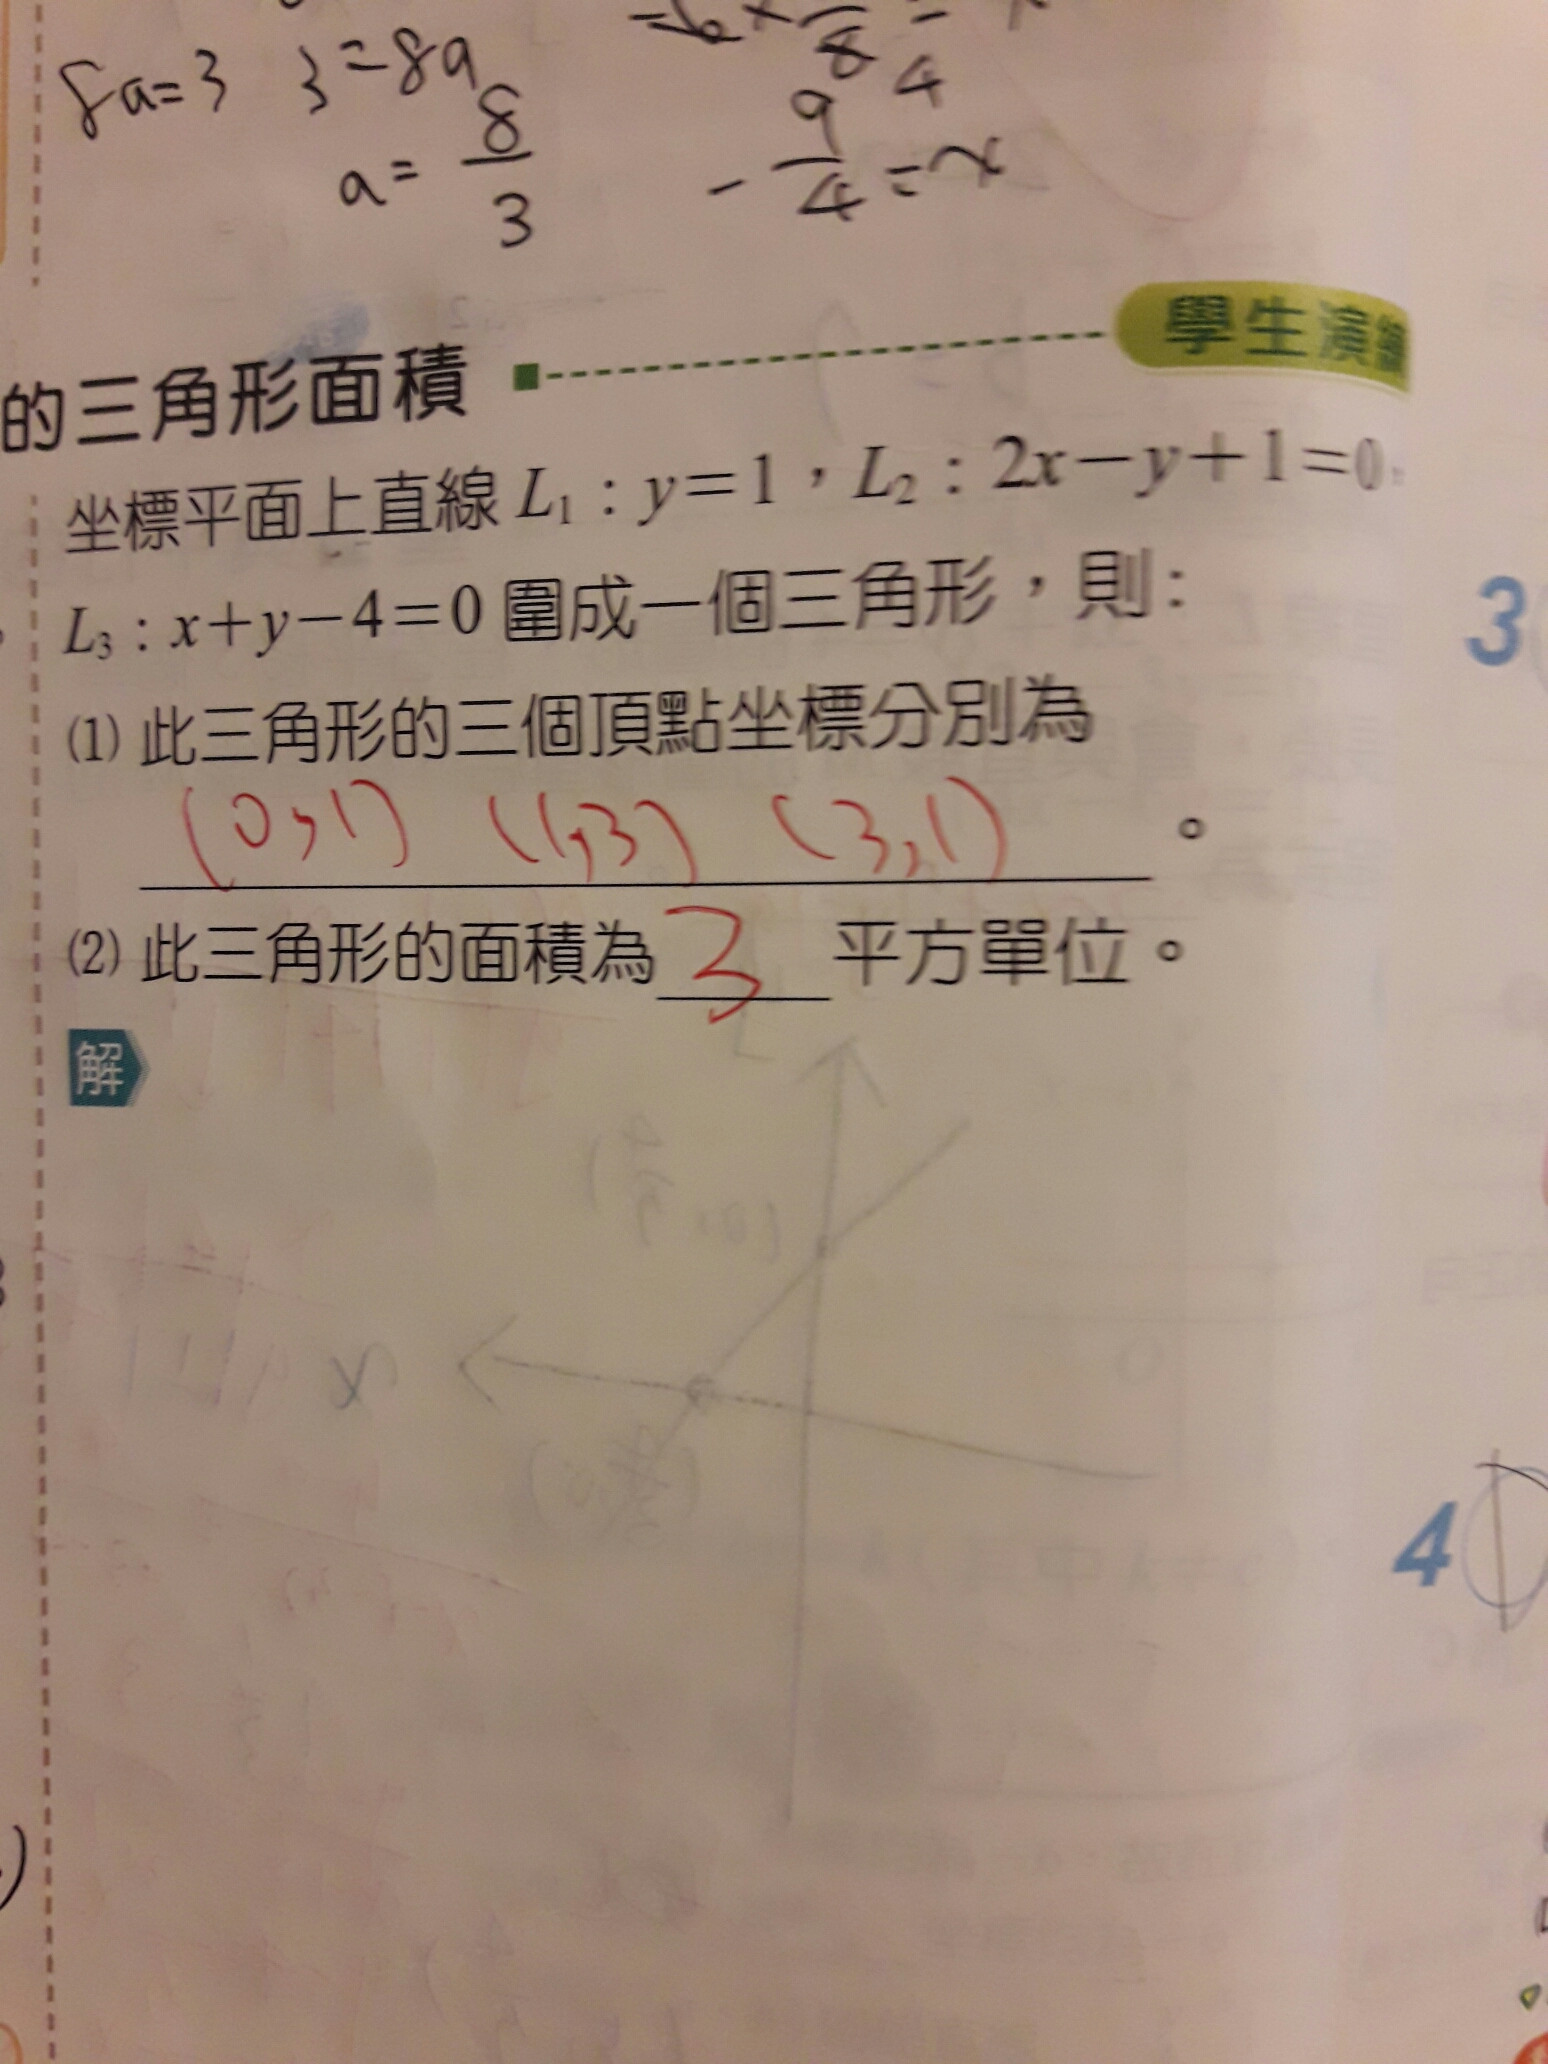 8a=3 3=8a
a= 8/3
-9/4=x
學生演練
的三角形面積
坐標平面上直線 L₁：y=1，L₂：2x-y+1=0，
L₃：x+y-4=0 圍成一個三角形，則：
(1) 此三角形的三個頂點坐標分別為
(0,1) (1,3) (3,1) 。
(2) 此三角形的面積為 3 平方單位。
3
解
4